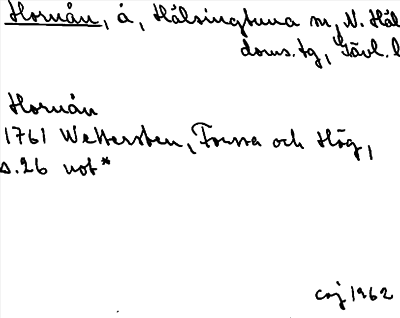 Hornån, å, Hälsingtuna sn, N. Häl
doms.tg, Gävl. l
Hornån
1761 Wettersten, Forssa och Hög,
s.26 not*
CEJ 1962